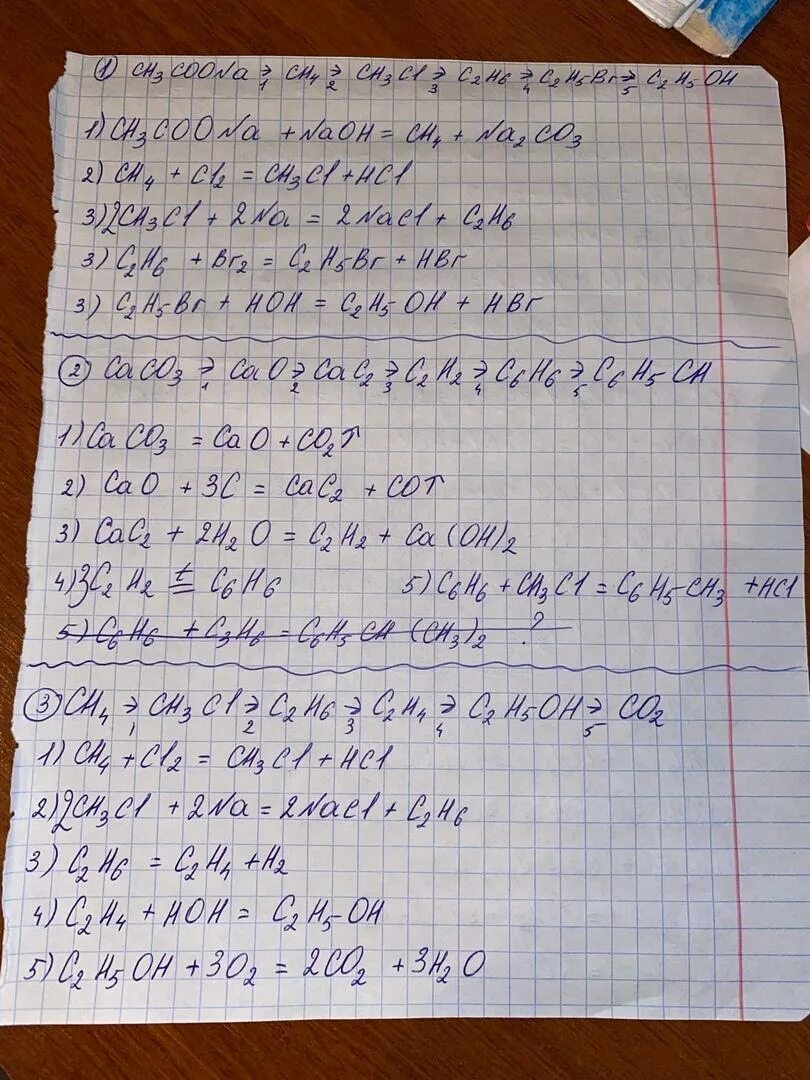 ① CH₃COONa →₁ CH₄ →₂ CH₃Cl →₃ C₂H₆ →₄ C₂H₅Br →₅ C₂H₅OH
1) CH₃COONa + NaOH = CH₄ + Na₂CO₃
2) CH₄ + Cl₂ = CH₃Cl + HCl
3) 2CH₃Cl + 2Na = 2NaCl + C₂H₆
3) C₂H₆ + Br₂ = C₂H₅Br + HBr
3) C₂H₅Br + HOH = C₂H₅OH + HBr
② CaCO₃ →₁ CaO →₂ CaC₂ →₃ C₂H₂ →₄ C₆H₆ →₅ C₆H₅CH
1) CaCO₃ = CaO + CO₂↑
2) CaO + 3C = CaC₂ + CO↑
3) CaC₂ + 2H₂O = C₂H₂ + Ca(OH)₂
4) 3C₂H₂ t= C₆H₆ 5) C₆H₆ + CH₃Cl = C₆H₅-CH₃ + HCl
5) C₆H₆ + C₃H₆ = C₆H₅CH(CH₃)₂ ?
③ CH₄ →₁ CH₃Cl →₂ C₂H₆ →₃ C₂H₄ →₄ C₂H₅OH →₅ CO₂
1) CH₄ + Cl₂ = CH₃Cl + HCl
2) 2CH₃Cl + 2Na = 2NaCl + C₂H₆
3) C₂H₆ = C₂H₄ + H₂
4) C₂H₄ + HOH = C₂H₅-OH
5) C₂H₅OH + 3O₂ = 2CO₂ + 3H₂O